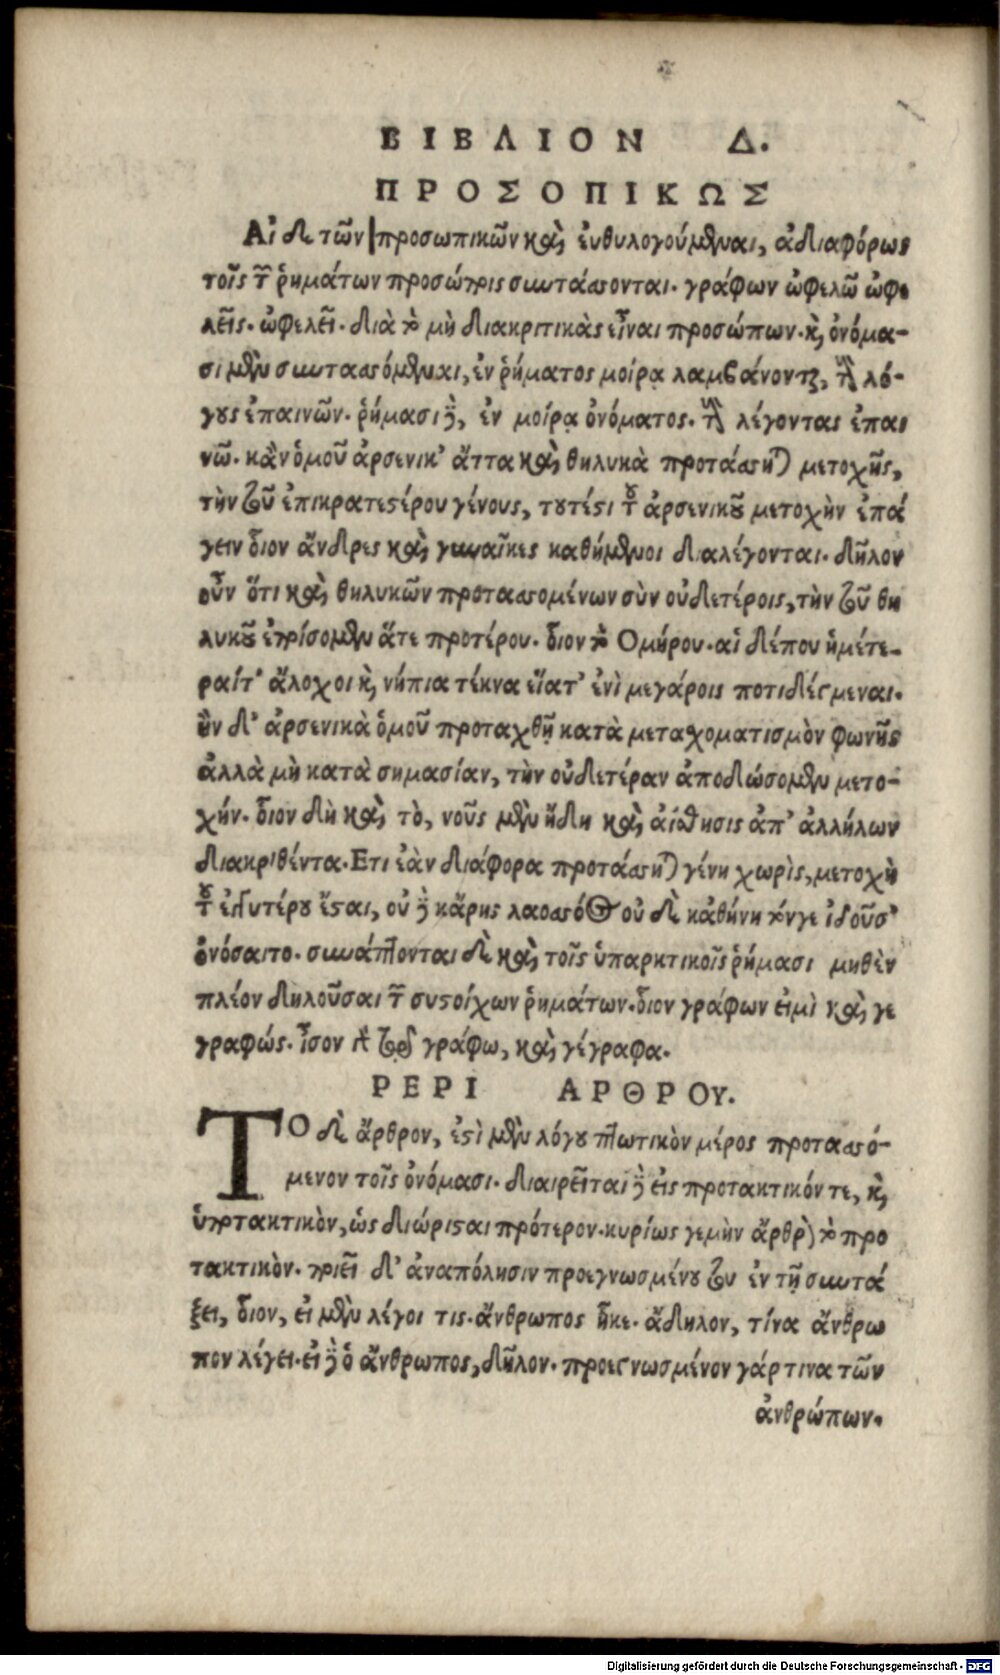 ΒΙΒΛΙΟΝ Δ.
ΠΡΟΣΟΠΙΚΩΣ
Αἱ δὲ τῶν προσωπικῶν καὶ ἐυθυλογούμεναι, ἀδιαφόρως
τοῖς τῶν ῥημάτων προσώποις συντάσσονται. γράφων ὠφελῶ ὠφε
λεῖς. ὠφελεῖ. διὰ τὸ μὴ διακριτικὰς εἶναι προσώπων. καὶ ὀνόμα-
σι μὲν συντασσόμεναι, ἐν ῥήματος μοίρᾳ λαμβάνονται, τοὺς λό-
γους ἐπαινῶν. ῥήμασι δὲ, ἐν μοίρᾳ ὀνόματος. τοὺς λέγοντας ἐπαι
νῶ. κἂν ὁμοῦ ἀρσενικ' ἄττα καὶ θηλυκὰ προτάσσηται μετοχῆς,
τὴν τοῦ ἐπικρατεστέρου γένους, τουτέστι τοῦ ἀρσενικοῦ μετοχὴν ἐπά
γειν δῖον ἄνδρες καὶ γυναῖκες καθήμενοι διαλέγονται. δῆλον
οὖν ὅτι καὶ θηλυκῶν προτασσομένων σὺν οὐδετέροις, τὴν τοῦ θη
λυκοῦ ἐποίσομεν ἅτε προτέρου. δῖον τὸ Ομήρου. αἱ δέπου ἡμέτε-
ραίτ' ἄλοχοι καὶ νήπια τέκνα εἵατ' ἐνὶ μεγάροις ποτιδέγμεναι.
ἢν δ' ἀρσενικὰ ὁμοῦ προταχθῇ κατὰ μετασχοματισμὸν φωνῆς
ἀλλὰ μὴ κατὰ σημασίαν, τὴν οὐδετέραν ἀποδώσομεν μετο-
χήν. δῖον δὴ καὶ τὸ, νοῦς μὲν ἤδη καὶ αἴσθησις ἀπ' ἀλλήλων
διακριθέντα. Ετι ἐὰν διάφορα προτάσσηται γένη χωρὶς, μετοχὴ
τοῦ δευτέρου ἔσται, οὐ δὲ κἄρης λαοσσόος οὐ δὲ κἀθήνη τόνγε ἰδοῦσ'
ὀνόσαιτο. συνάπτονται δὲ καὶ τοῖς ὑπαρκτικοῖς ῥήμασι μηθὲν
πλέον δηλοῦσαι τῶν συστοίχων ῥημάτων. δῖον γράφων εἰμὶ καὶ γε
γραφώς. ἶσον ὂν τῷ γράφω, καὶ γέγραφα.
ΡΕΡΙ ΑΡΘΡΟΥ.
ΤΟ δὲ ἄρθρον, ἐστὶ μὲν λόγου πτωτικὸν μέρος προτασσό-
μενον τοῖς ὀνόμασι. διαιρεῖται δὲ εἰς προτακτικόν τε, καὶ
ὑποτακτικὸν, ὡς διώρισται πρότερον. κυρίως γεμὴν ἄρθρον τὸ προ
τακτικὸν. ποιεῖ δ' ἀναπόλησιν προεγνωσμένου του ἐν τῇ συντά
ξει, δῖον, εἰ μὲν λέγοι τις. ἄνθρωπος ἧκε. ἄδηλον, τίνα ἄνθρω
πον λέγει. εἰ δὲ ὁ ἄνθρωπος, δῆλον. προεγνωσμένον γάρ τινα τῶν
ἀνθρώπων.
Digitalisierung gefördert durch die Deutsche Forschungsgemeinschaft - DFG